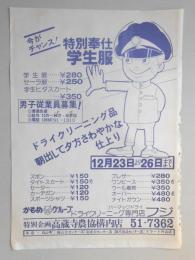 今が
チャンス!
特別奉仕
学生服
学生服 ¥280
セーラ服 ¥250
学生ヒダスカート
¥350
男子従業員募集!
ドライクリーニング品
朝出して夕方さわやかな
仕上り
12月23日〜26日まで
ズボン ¥150
タイトスカート ¥150
セーター ¥150
カーデガン ¥150
スポーツシャツ ¥150
ブレザー ¥280
ワンピース ¥350
オーバー ¥480
かもめグループ
ドライクリーニング専門店 フジ
特別企画 高蔵寺農協構内店 51-7362